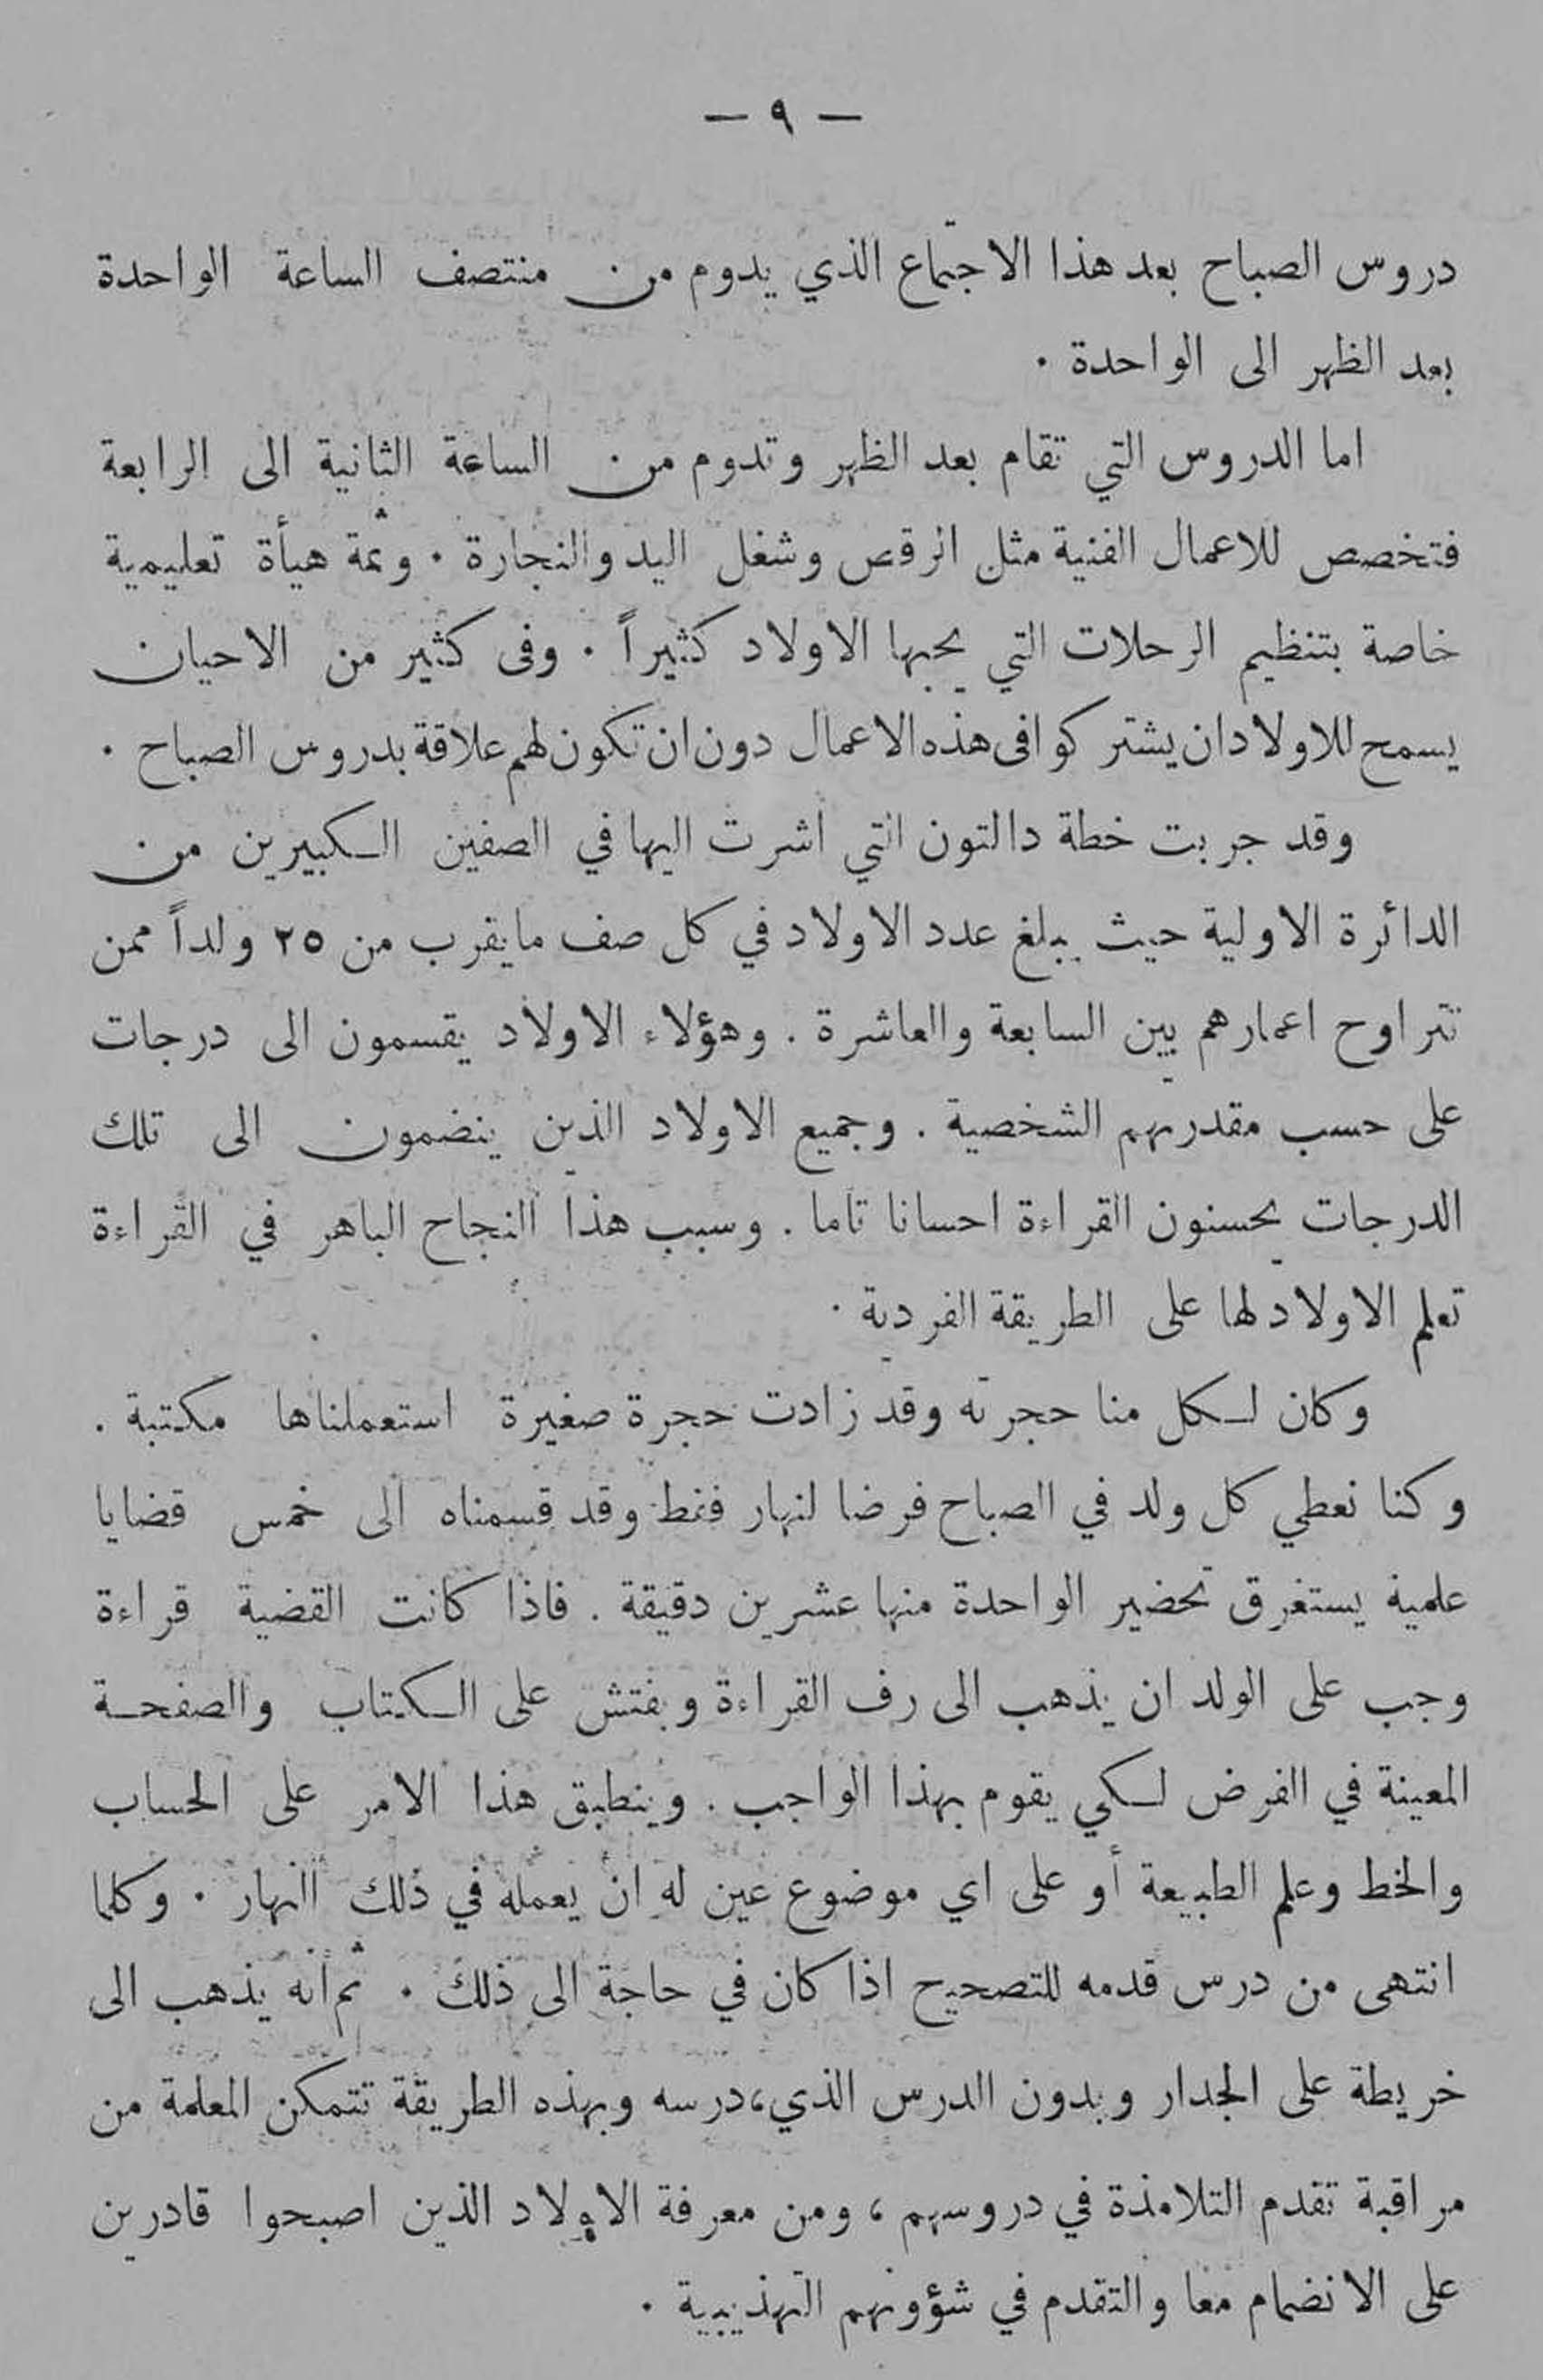 — ٩ —
دروس الصباح بعد هذا الاجتماع الذي يدوم من منتصف الساعة الواحدة
بعد الظهر الى الواحدة .
اما الدروس التي تقام بعد الظهر وتدوم من الساعة الثانية الى الرابعة
فتخصص للاعمال الفنية مثل الرقص وشغل اليد والنجارة . وثمة هيأة تعليمية
خاصة بتنظيم الرحلات التي يحبها الاولاد كثيراً . وفى كثير من الاحيان
يسمح للاولاد ان يشتركوا فى هذه الاعمال دون ان تكون لهم علاقة بدروس الصباح .
وقد جربت خطة دالتون التي اشرت اليها في الصفين الكبيرين من
الدائرة الاولية حيث يبلغ عدد الاولاد في كل صف مايقرب من ٢٥ ولداً ممن
تتراوح اعمارهم بين السابعة والعاشرة . وهؤلاء الاولاد يقسمون الى درجات
على حسب مقدرتهم الشخصية . وجميع الاولاد الذين ينضمون الى تلك
الدرجات يحسنون القراءة احسانا تاما . وسبب هذا النجاح الباهر في القراءة
تعلم الاولاد لها على الطريقة الفردية .
وكان لكل منا حجرته وقد زادت حجرة صغيرة استعملناها مكتبة .
وكنا نعطي كل ولد في الصباح فرضا لنهار فقط وقد قسمناه الى خمس قضايا
علمية يستغرق تحضير الواحدة منها عشرين دقيقة . فاذا كانت القضية قراءة
وجب على الولد ان يذهب الى رف القراءة ويفتش على الكتاب والصفحة
المعينة في الفرض لكي يقوم بهذا الواجب . وينطبق هذا الامر على الحساب
والخط وعلم الطبيعة أو على اي موضوع عين له ان يعمله في ذلك النهار . وكلما
انتهى من درس قدمه للتصحيح اذا كان في حاجة الى ذلك . ثم أنه يذهب الى
خريطة على الجدار ويدون الدرس الذي، درسه وبهذه الطريقة تتمكن المعلمة من
مراقبة تقدم التلامذة في دروسهم ، ومن معرفة الاولاد الذين اصبحوا قادرين
على الانضمام معا والتقدم في شؤونهم التهذيبية .